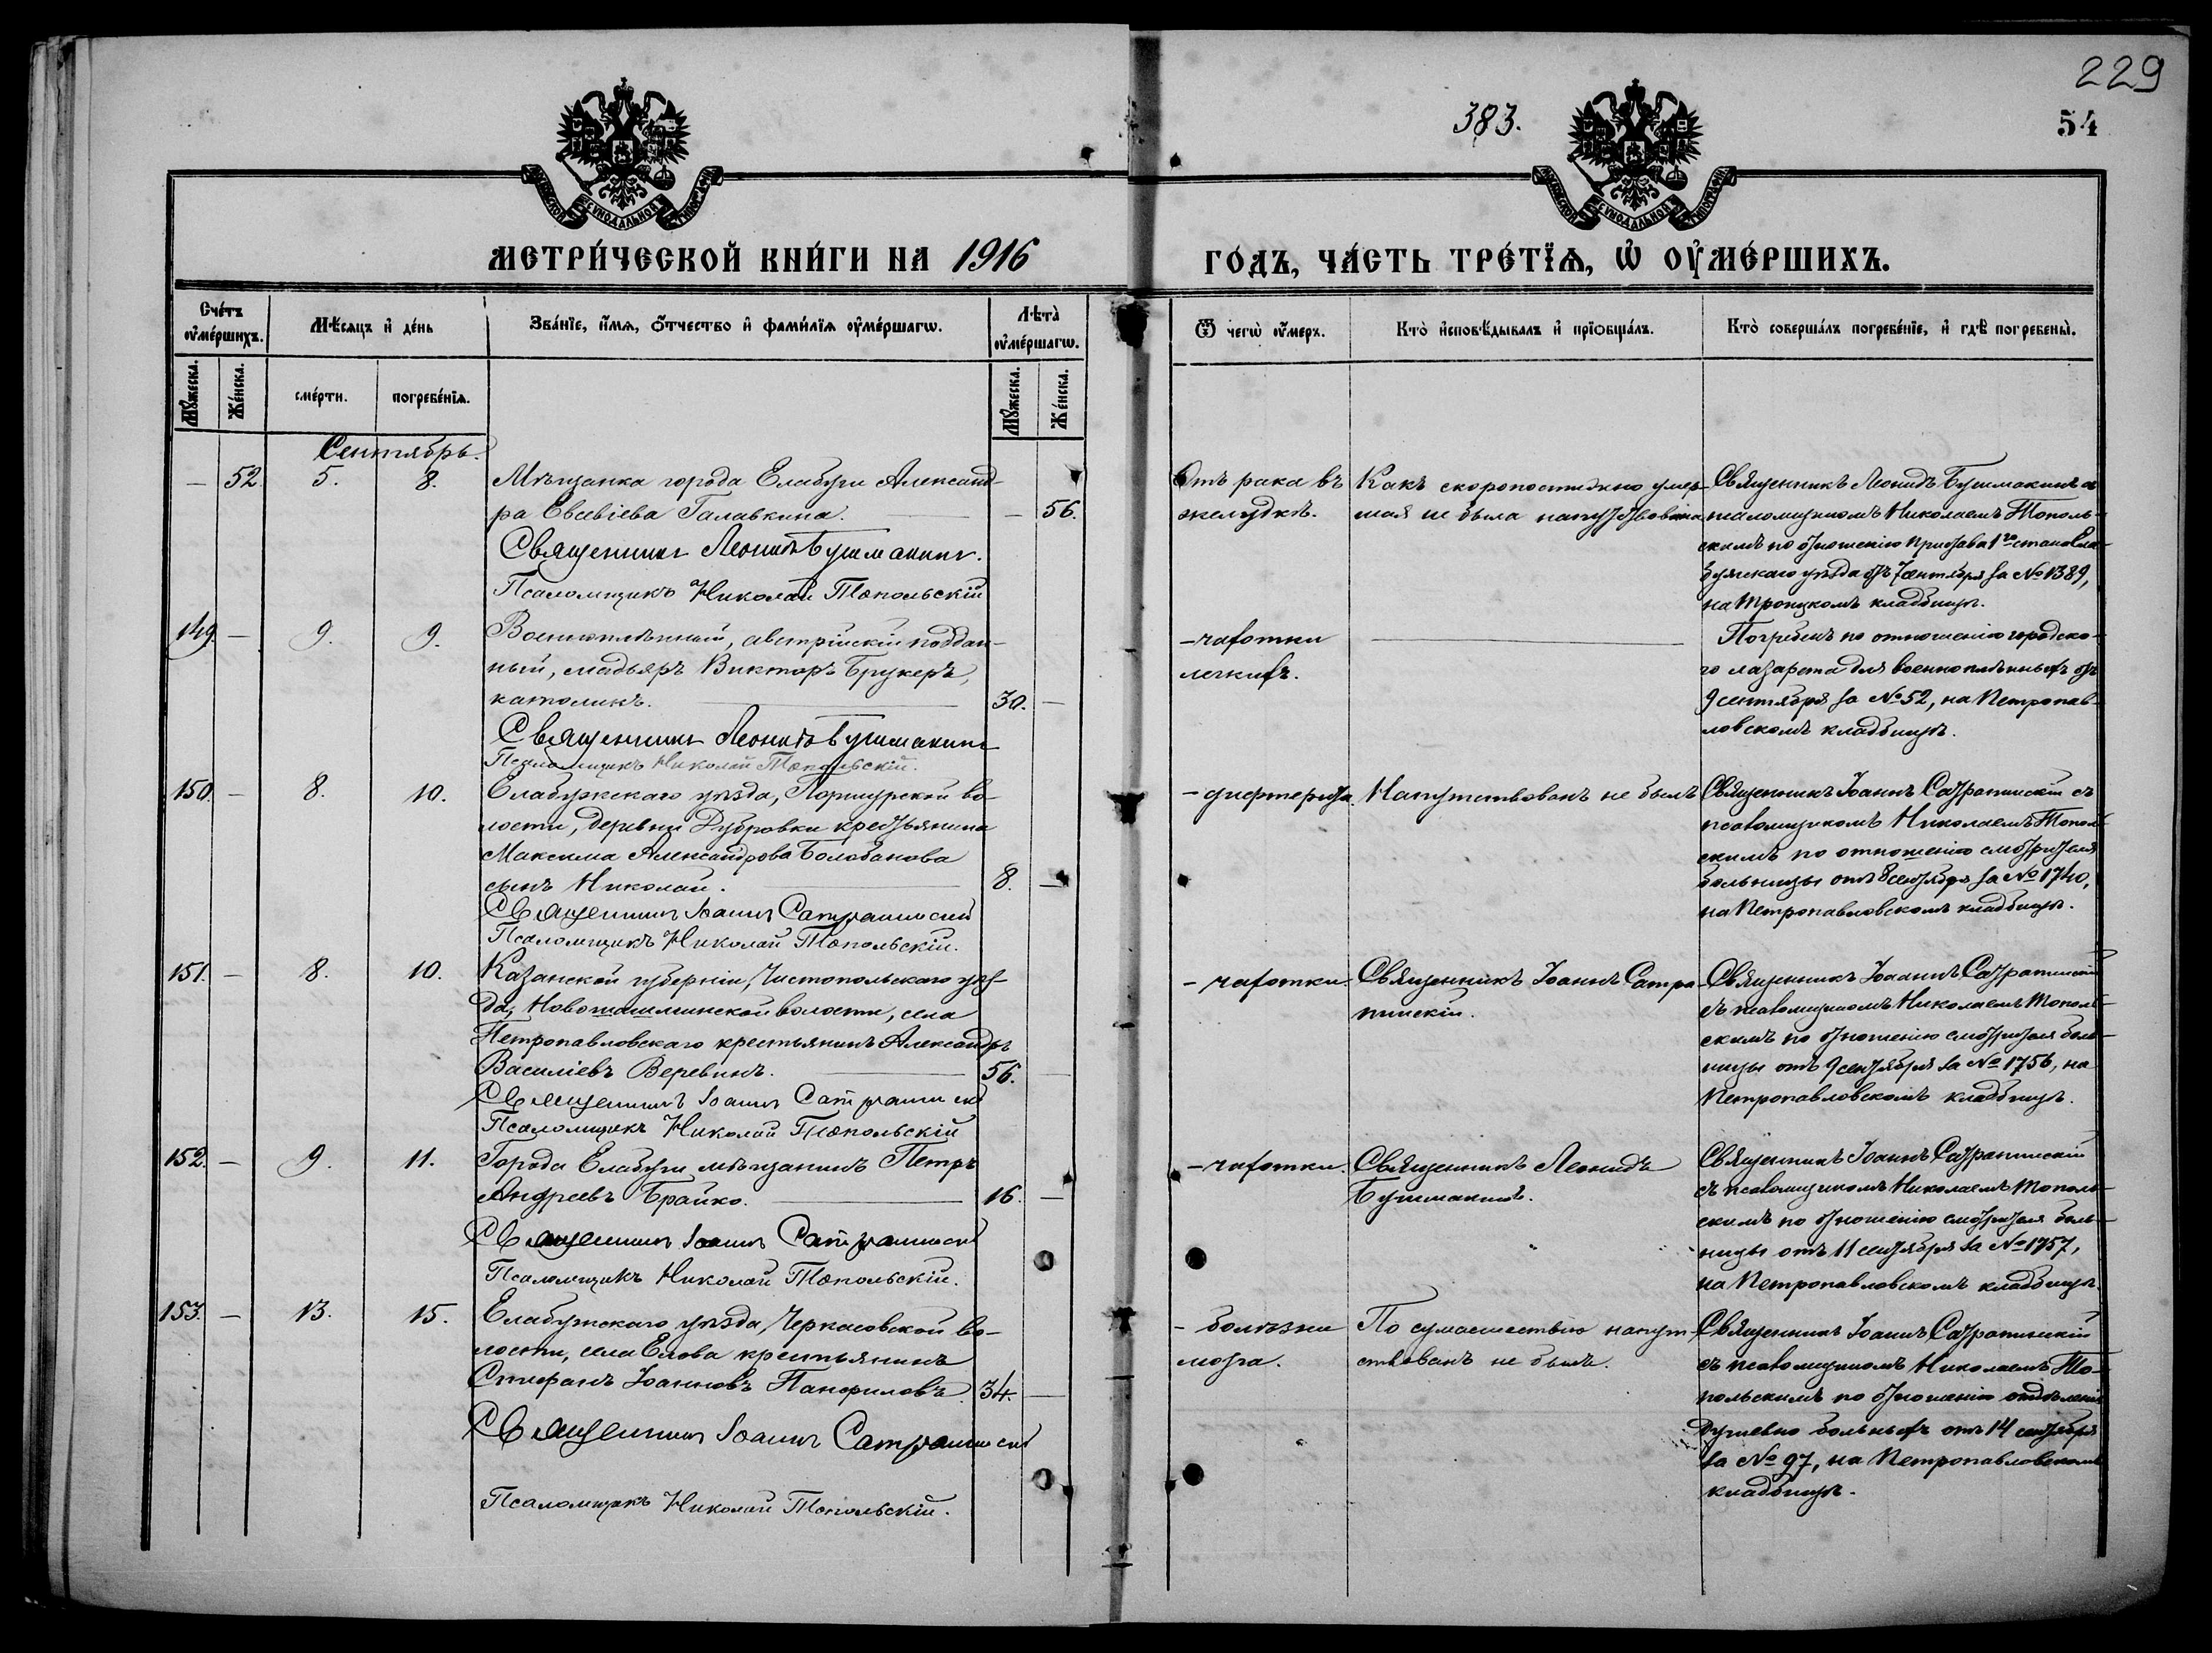 229
383.
54
МОСКОВСКОЙ СѴНОДАЛЬНОЙ ТИПОГРАФІИ
МОСКОВСКОЙ СѴНОДАЛЬНОЙ ТИПОГРАФІИ
МЕТРИ́ЧЕСКОЙ КНИ́ГИ НА 1916
ГО́ДЪ, ЧА́СТЬ ТРЕ́ТЇѦ, Ѡ҆ ОУ҆МЕ́РШИХЪ.
Сче́тъ оу҆ме́ршихъ.
Мѣ́сѧцъ и҆ де́нь
Зва́нїе, и҆́мѧ, ѻ҆́тчество и҆ фами́лїѧ оу҆ме́ршагѡ.
Лѣ́та оу҆ме́ршагѡ.
Ѿ чегѡ̀ оу҆́меръ.
Кто̀ и҆сповѣ́дывалъ и҆ прїѡбща́лъ.
Кто̀ соверша́лъ погребе́нїе, и҆ гдѣ̀ погребены̀.
Мꙋ́жеска.
Же́нска.
сме́рти.
погребе́нїѧ.
Мꙋ́жеска.
Же́нска.
Сентябрь.
— 52 5. 8.
Мѣщанка города Елабуги Александ-
ра Евсевіева Галавкина. — 56.
Священникъ Леонидъ Бушмакинъ.
Псаломщикъ Николай Топольскій
Отъ рака въ
желудкѣ.
Какъ скоропостижно умер-
шая не была напутствована
Священникъ Леонидъ Бушмакинъ съ
псаломщикомъ Николаемъ Тополь-
скимъ по отношенію Пристава 1го стана Ела-
бужскаго уѣзда отъ 7 сентября за № 1389,
на Троицкомъ кладбищѣ.
149. — 9. 9.
Военноплѣнный, австрійскій поддан-
ный, мадьяръ Викторъ Брукеръ,
католикъ. 30. —
Священникъ Леонидъ Бушмакинъ
Псаломщикъ Николай Топольскій.
— чахотки
легкихъ.
Погребенъ по отношенію городско-
го лазарета для военноплѣнныхъ отъ
9 сентября за № 52, на Петропав-
ловскомъ кладбищѣ.
150. — 8. 10.
Елабужскаго уѣзда, Поршурской во-
лости, деревни Дубровки крестьянина
Максима Александрова Болобанова
сынъ Николай. 8. —
Священникъ Іоаннъ Сатрапинскій
Псаломщикъ Николай Топольскій.
— дифтерита.
Напутствованъ не былъ
Священникъ Іоаннъ Сатрапинскій съ
псаломщикомъ Николаемъ Тополь-
скимъ по отношенію смотрителя
больницы отъ 8 сентября за № 1740,
на Петропавловскомъ кладбищѣ.
151. — 8. 10.
Казанской губерніи, Чистопольскаго уѣз-
да, Новошешминской волости, села
Петропавловскаго крестьянинъ Александръ
Василіевъ Веревинъ. 56. —
Священникъ Іоаннъ Сатрапинскій
Псаломщикъ Николай Топольскій
— чахотки
Священникъ Іоаннъ Сатра-
пинскій.
Священникъ Іоаннъ Сатрапинскій
съ псаломщикомъ Николаемъ Тополь-
скимъ по отношенію смотрителя боль-
ницы отъ 9 сентября за № 1756, на
Петропавловскомъ кладбищѣ.
152. — 9. 11.
Города Елабуги мѣщанинъ Петръ
Андреевъ Брайко. 16. —
Священникъ Іоаннъ Сатрапинскій
Псаломщикъ Николай Топольскій.
— чахотки.
Священникъ Леонидъ
Бушмакинъ.
Священникъ Іоаннъ Сатрапинскій
съ псаломщикомъ Николаемъ Тополь-
скимъ по отношенію смотрителя боль-
ницы отъ 11 сентября за № 1757,
на Петропавловскомъ кладбищѣ.
153. — 13. 15.
Елабужскаго уѣзда, Черкасовской во-
лости, села Елова крестьянинъ
Стефанъ Іоанновъ Панфиловъ. 34. —
Священникъ Іоаннъ Сатрапинскій
Псаломщикъ Николай Топольскій.
— болѣзни
мозга.
По сумасшествію напут-
ствованъ не былъ.
Священникъ Іоаннъ Сатрапинскій
съ псаломщикомъ Николаемъ То-
польскимъ по отношенію отдѣленія
душевно больныхъ отъ 14 сентября
за № 97, на Петропавловскомъ
кладбищѣ.